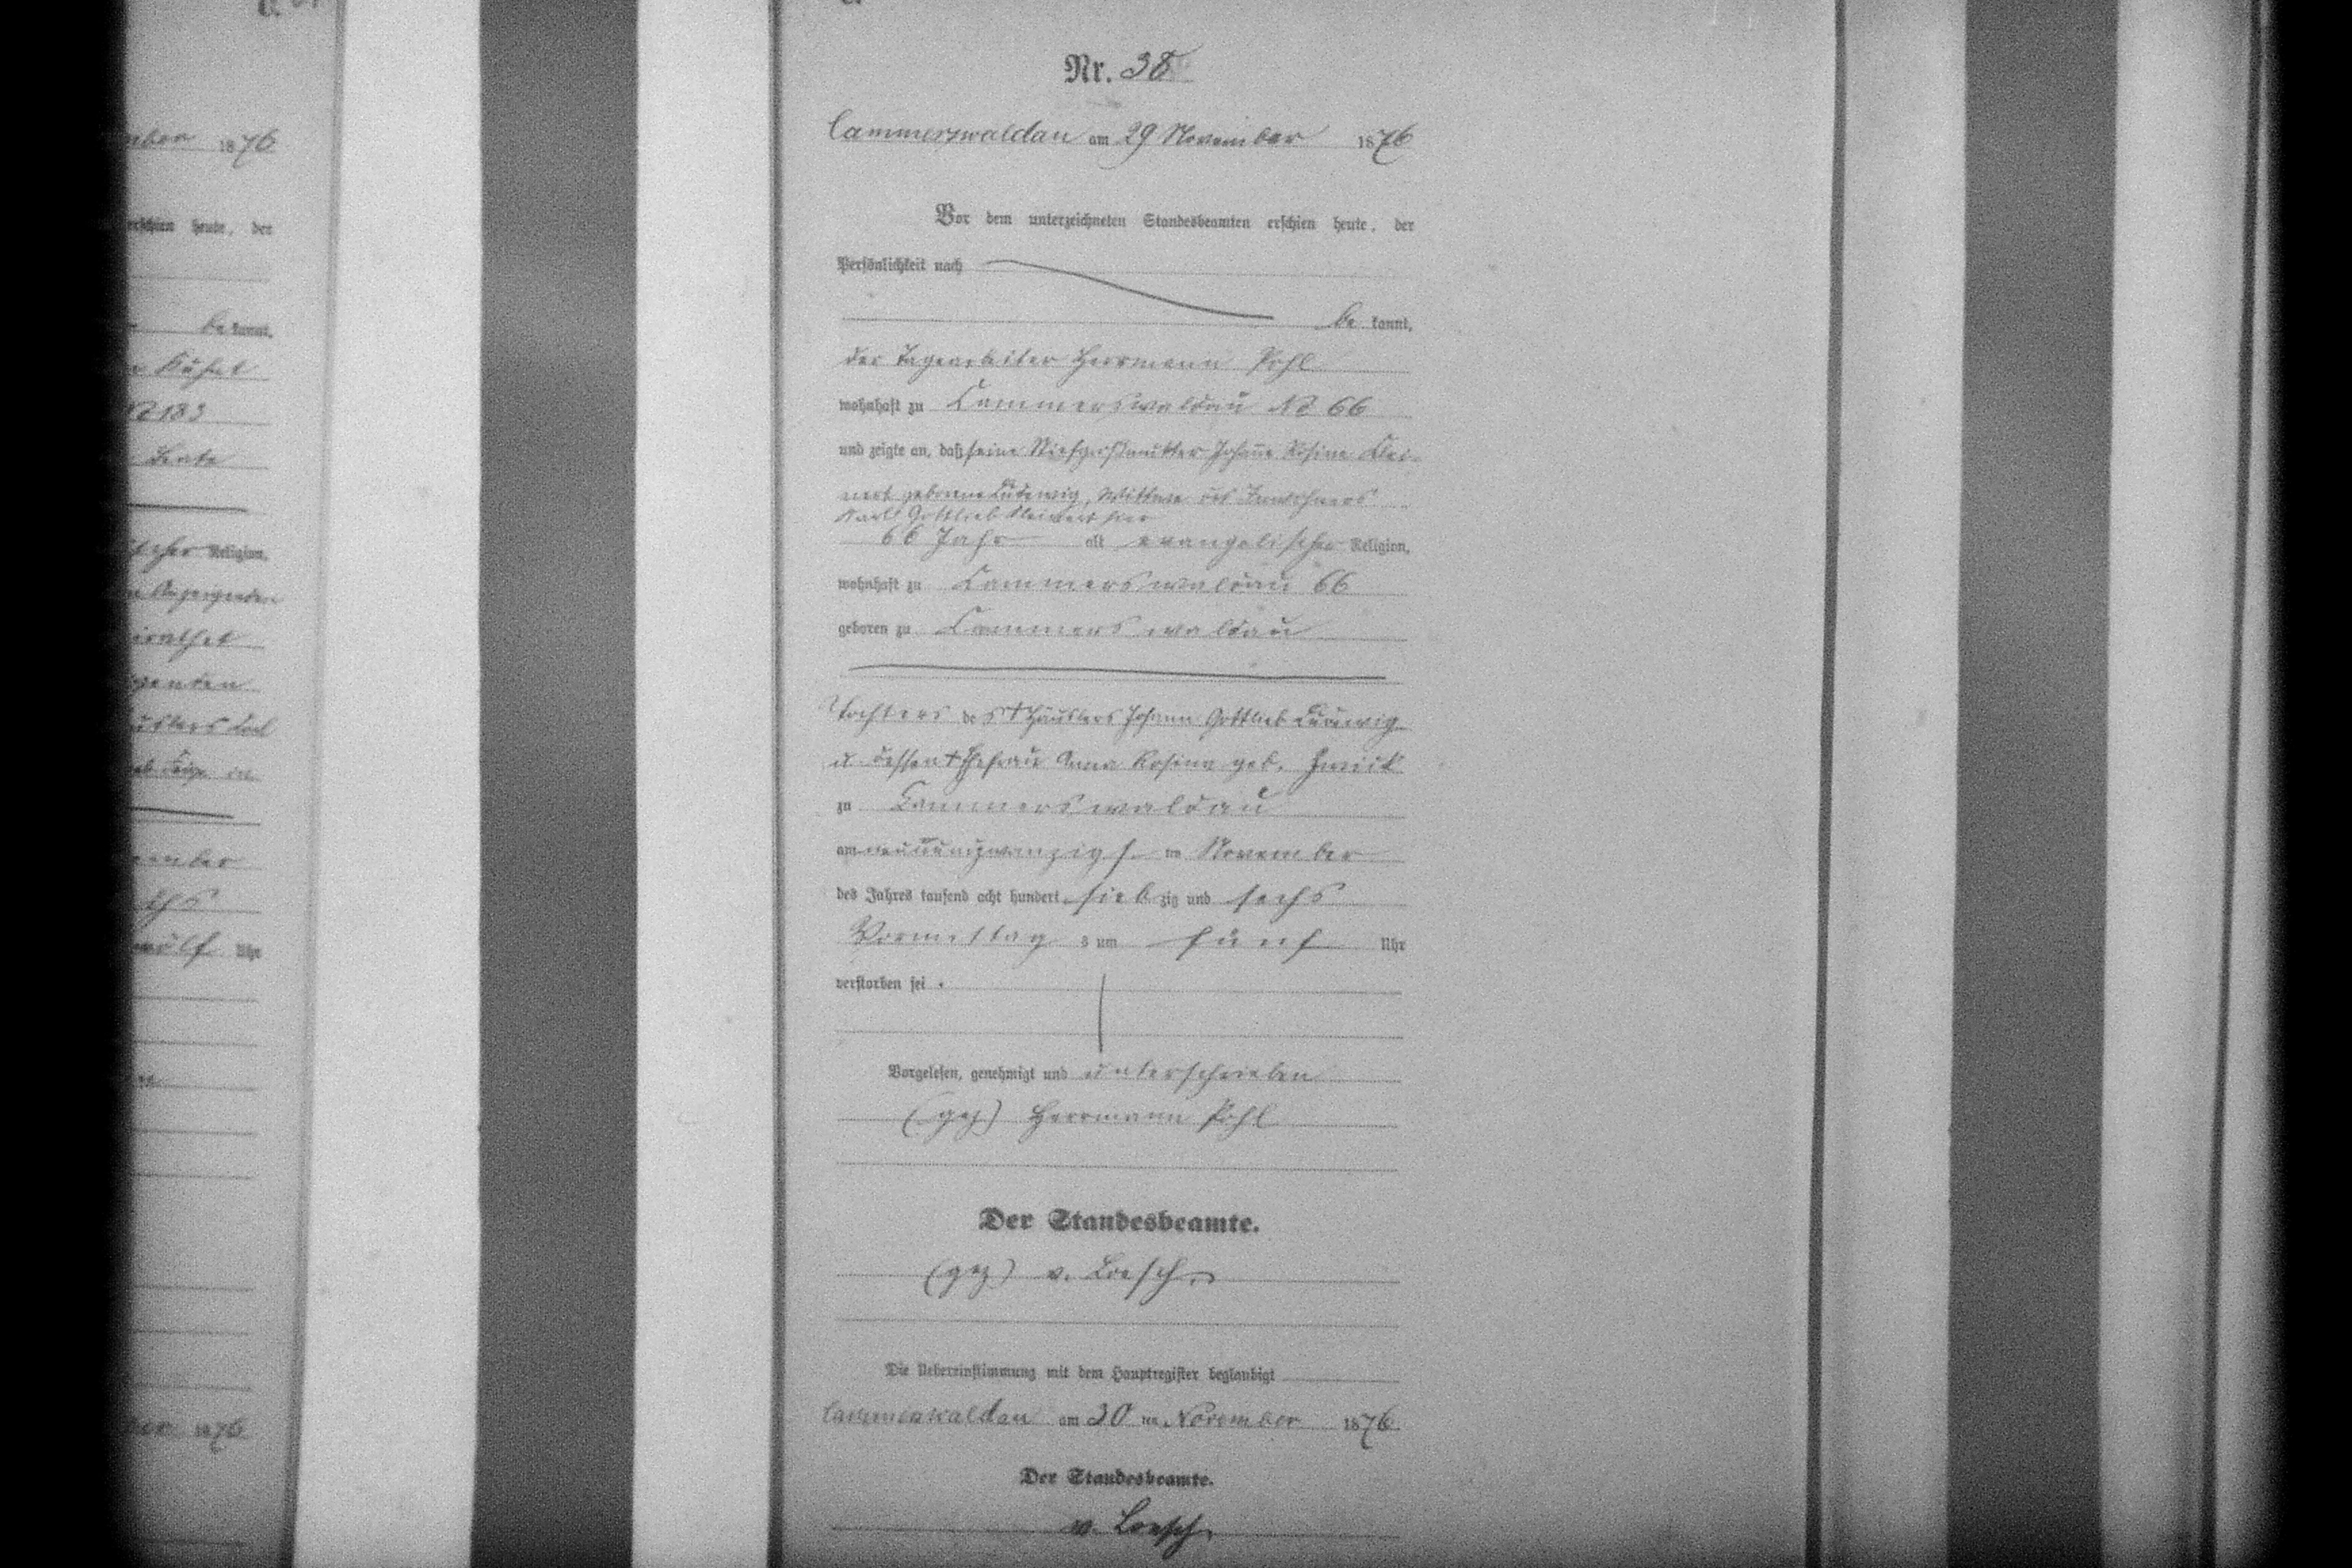 mber 1876
erschien heute, der
be kannt,
Kühnt
No 183
scher Religion,
Anzeigenden
irathet
ember
chs
wölf Uhr
ber 1876
Nr. 38
Cammerswaldau am 29 November 1876
Vor dem unterzeichneten Standesbeamten erschien heute, der
Persönlichkeit nach
be kannt,
der Tagearbeiter Herrmann Pohl
wohnhaft zu Cammerswaldau No 66
und zeigte an, daß seine Stiefgroßmutter Johanne Rosine Klei-
nert geborene Ludewig, Wittwe des Inwohners
Karl Gottlieb Kleinert hier
66 Jahr alt evangelischer Religion,
wohnhaft zu Cammerswaldau 66
geboren zu Cammerswaldau
Tochters des † Häuslers Johann Gottlieb Ludewig
u dessen † Ehefrau Anna Rosina geb. Zwick
zu Cammerswaldau
am neunundzwanzigs. ten November
des Jahres tausend acht hundert siebzig und sechs
Vormittag s um fünf Uhr
verstorben sei.
Vorgelesen, genehmigt und unterschrieben
(gez) Herrmann Pohl
Der Standesbeamte.
(gez) v. Loesch.
Die Uebereinstimmung mit dem Hauptregister beglaubigt
Cammerswaldau am 30 ten November 1876
Der Standesbeamte.
v. Loesch.